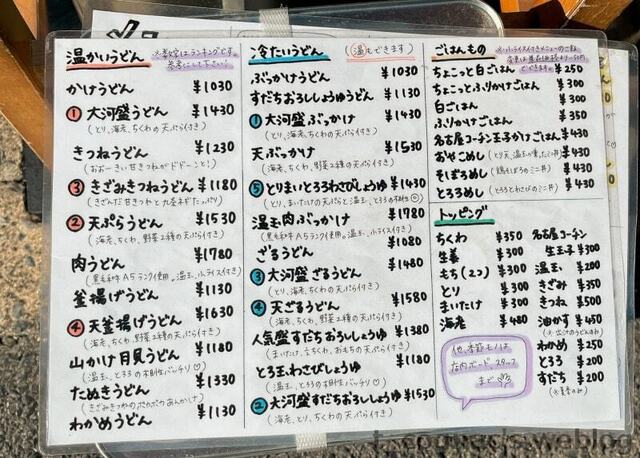 温かいうどん
※数字はランキングです
参考にして下さい!
かけうどん ¥1030
① 大河盛うどん ¥1430
(とり、海老、ちくわの天ぷら付き)
きつねうどん ¥1230
(おおーきい甘きつねがドドーンと!)
③ きざみきつねうどん ¥1180
② 天ぷらうどん ¥1530
(海老、ちくわ、野菜2種の天ぷら付き)
肉うどん ¥1780
(黒毛和牛A5ランク使用。温玉、小ライス付き)
釜揚げうどん ¥1130
④ 天釜揚げうどん ¥1630
(海老、ちくわ、野菜2種の天ぷら付き)
山かけ月見うどん ¥1180
(温玉、とろろの相性バッチリ♡)
たぬきうどん ¥1330
(きざみきつねのポカポカあんかけ)
わかめうどん ¥1130
冷たいうどん
(温もできます)
ぶっかけうどん ¥1030
すだちおろししょうゆうどん ¥1130
① 大河盛ぶっかけ ¥1430
(とり、海老、ちくわの天ぷら付き)
天ぶっかけ ¥1530
(海老、ちくわ、野菜2種の天ぷら付き)
⑤ とりまいとろろわさびしょうゆ ¥1430
(とり、まいたけの天ぷらと温玉、とろろの相性◎)
温玉肉ぶっかけ ¥1780
(黒毛和牛A5ランク使用。温玉、小ライス付き)
ざるうどん ¥1080
③ 大河盛ざるうどん ¥1480
(とり、海老、ちくわの天ぷら付き)
④ 天ざるうどん ¥1580
(海老、ちくわ、野菜2種の天ぷら付き)
人気盛すだちおろししょうゆ ¥1380
とろ玉わさびしょうゆ ¥1180
(温玉、とろろの相性バッチリ♡)
② 大河盛すだちおろししょうゆ ¥1530
(海老、とり、ちくわの天ぷら付き)
ごはんもの
ちょこっと白ごはん ¥250
ちょこっとふりかけごはん ¥300
白ごはん ¥300
ふりかけごはん ¥350
名古屋コーチン玉子かけごはん ¥430
おやこめし ¥430
そぼろめし (鶏そぼろのミニ丼) ¥430
とろろめし (とろろとわさびのミニ丼) ¥430
トッピング
ちくわ ¥350
生姜 ¥300
もち(2コ) ¥300
とり ¥300
まいたけ ¥300
海老 ¥480
名古屋コーチン
生玉子 ¥300
温玉 ¥200
きざみ ¥350
きつね ¥500
油かす ¥450
わかめ ¥250
とろろ ¥200
すだち ¥200
他、季節モノは
店内ボード、スタッフ
まで